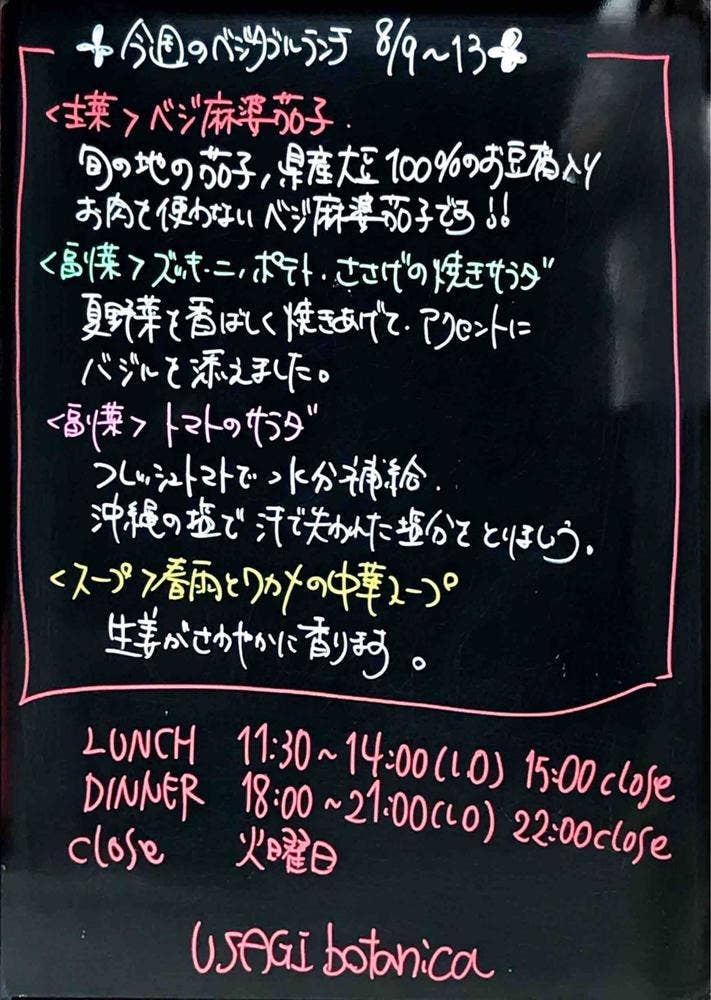 今週のベジタブルランチ 8/9~13
<主菜> ベジ麻婆茄子.
旬の地の茄子、県産大豆100%のお豆腐入り
お肉を使わないベジ麻婆茄子です!!
<副菜> ズッキーニ、ポテト、ささげの焼きサラダ
夏野菜を香ばしく焼きあげて、アクセントに
バジルを添えました。
<副菜> トマトのサラダ
フレッシュトマトで水分補給.
沖縄の塩で汗で失われた塩分をとりましょう.
<スープ> 春雨とワカメの中華スープ
生姜がさわやかに香ります。
LUNCH 11:30~14:00(L.O) 15:00 close
DINNER 18:00~21:00(LO) 22:00 close
close 火曜日
USAGI botanica